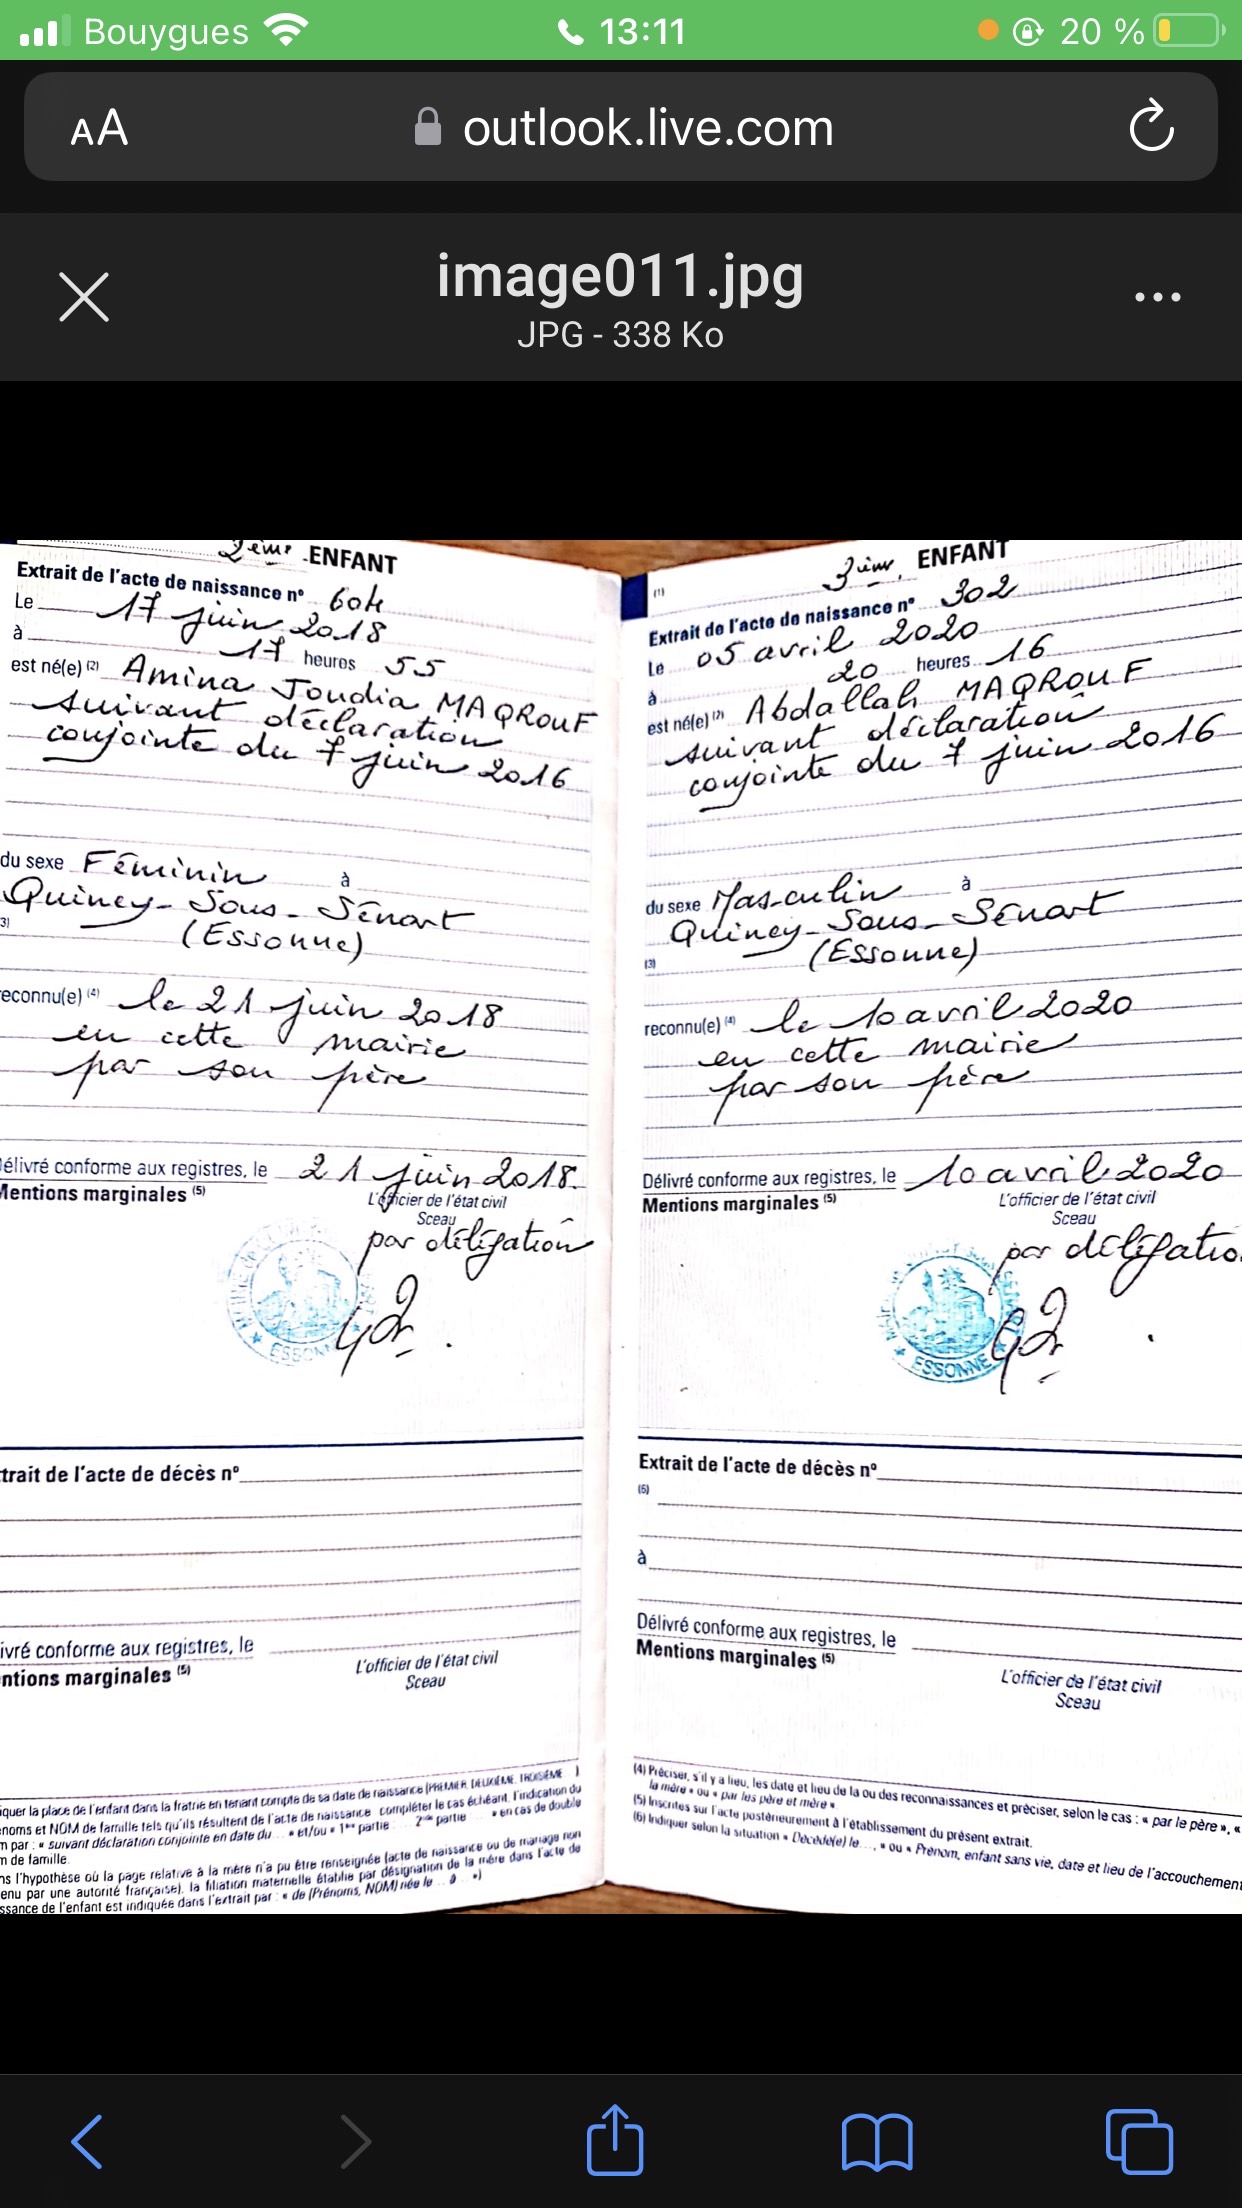 Bouygues
13:11
20 %
AA
outlook.live.com
image011.jpg
JPG - 338 Ko
2ème ENFANT
Extrait de l'acte de naissance nº 604
Le 17 juin 2018
à 17 heures 55
est né(e) (2) Amina Joudia MAQROUF
suivant déclaration
conjointe du 7 juin 2016
du sexe Féminin à
Quincy-Sous-Sénart
3)
(Essonne)
econnu(e) (4) le 21 juin 2018
en cette mairie
par son père
élivré conforme aux registres, le 21 juin 2018.
Mentions marginales (5)
L'officier de l'état civil
Sceau
par délégation
ESSONNE
trait de l'acte de décès nº
ivré conforme aux registres, le
ntions marginales (5)
L'officier de l'état civil
Sceau
iquer la place de l'enfant dans la fratrie en tenant compte de sa date de naissance (PREMIER, DEUXIÈME, TROISIÈME )
énoms et NOM de famille tels qu'ils résultent de l'acte de naissance compléter le cas échéant, l'indication du
m par : « suivant déclaration conjointe en date du ... » et/ou « 1ère partie : ... 2nde partie ... » en cas de double
m de famille.
ns l'hypothèse où la page relative à la mère n'a pu être renseignée (acte de naissance ou de mariage non
enu par une autorité française), la filiation maternelle établie par désignation de la mère dans l'acte de
ssance de l'enfant est indiquée dans l'extrait par : « de (Prénoms, NOM) née le ... à ... »)
(1)
3ème ENFANT
Extrait de l'acte de naissance nº 302
Le 05 avril 2020
à 20 heures 16
est né(e) (2) Abdallah MAQROUF
suivant déclaration
conjointe du 7 juin 2016
du sexe Masculin à
Quincy-Sous-Sénart
(3)
(Essonne)
reconnu(e) (4) le 10 avril 2020
en cette mairie
par son père
Délivré conforme aux registres, le 10 avril 2020
Mentions marginales (5)
L'officier de l'état civil
Sceau
par délégatio
ESSONNE
Extrait de l'acte de décès nº
(6)
à
Délivré conforme aux registres, le
Mentions marginales (5)
L'officier de l'état civil
Sceau
(4) Préciser, s'il y a lieu, les date et lieu de la ou des reconnaissances et préciser, selon le cas : « par le père », «
la mère » ou « par les père et mère »
(5) Inscrites sur l'acte postérieurement à l'établissement du présent extrait.
(6) Indiquer selon la situation « Décédé(e) le ..., » ou « Prénom, enfant sans vie, date et lieu de l'accouchement